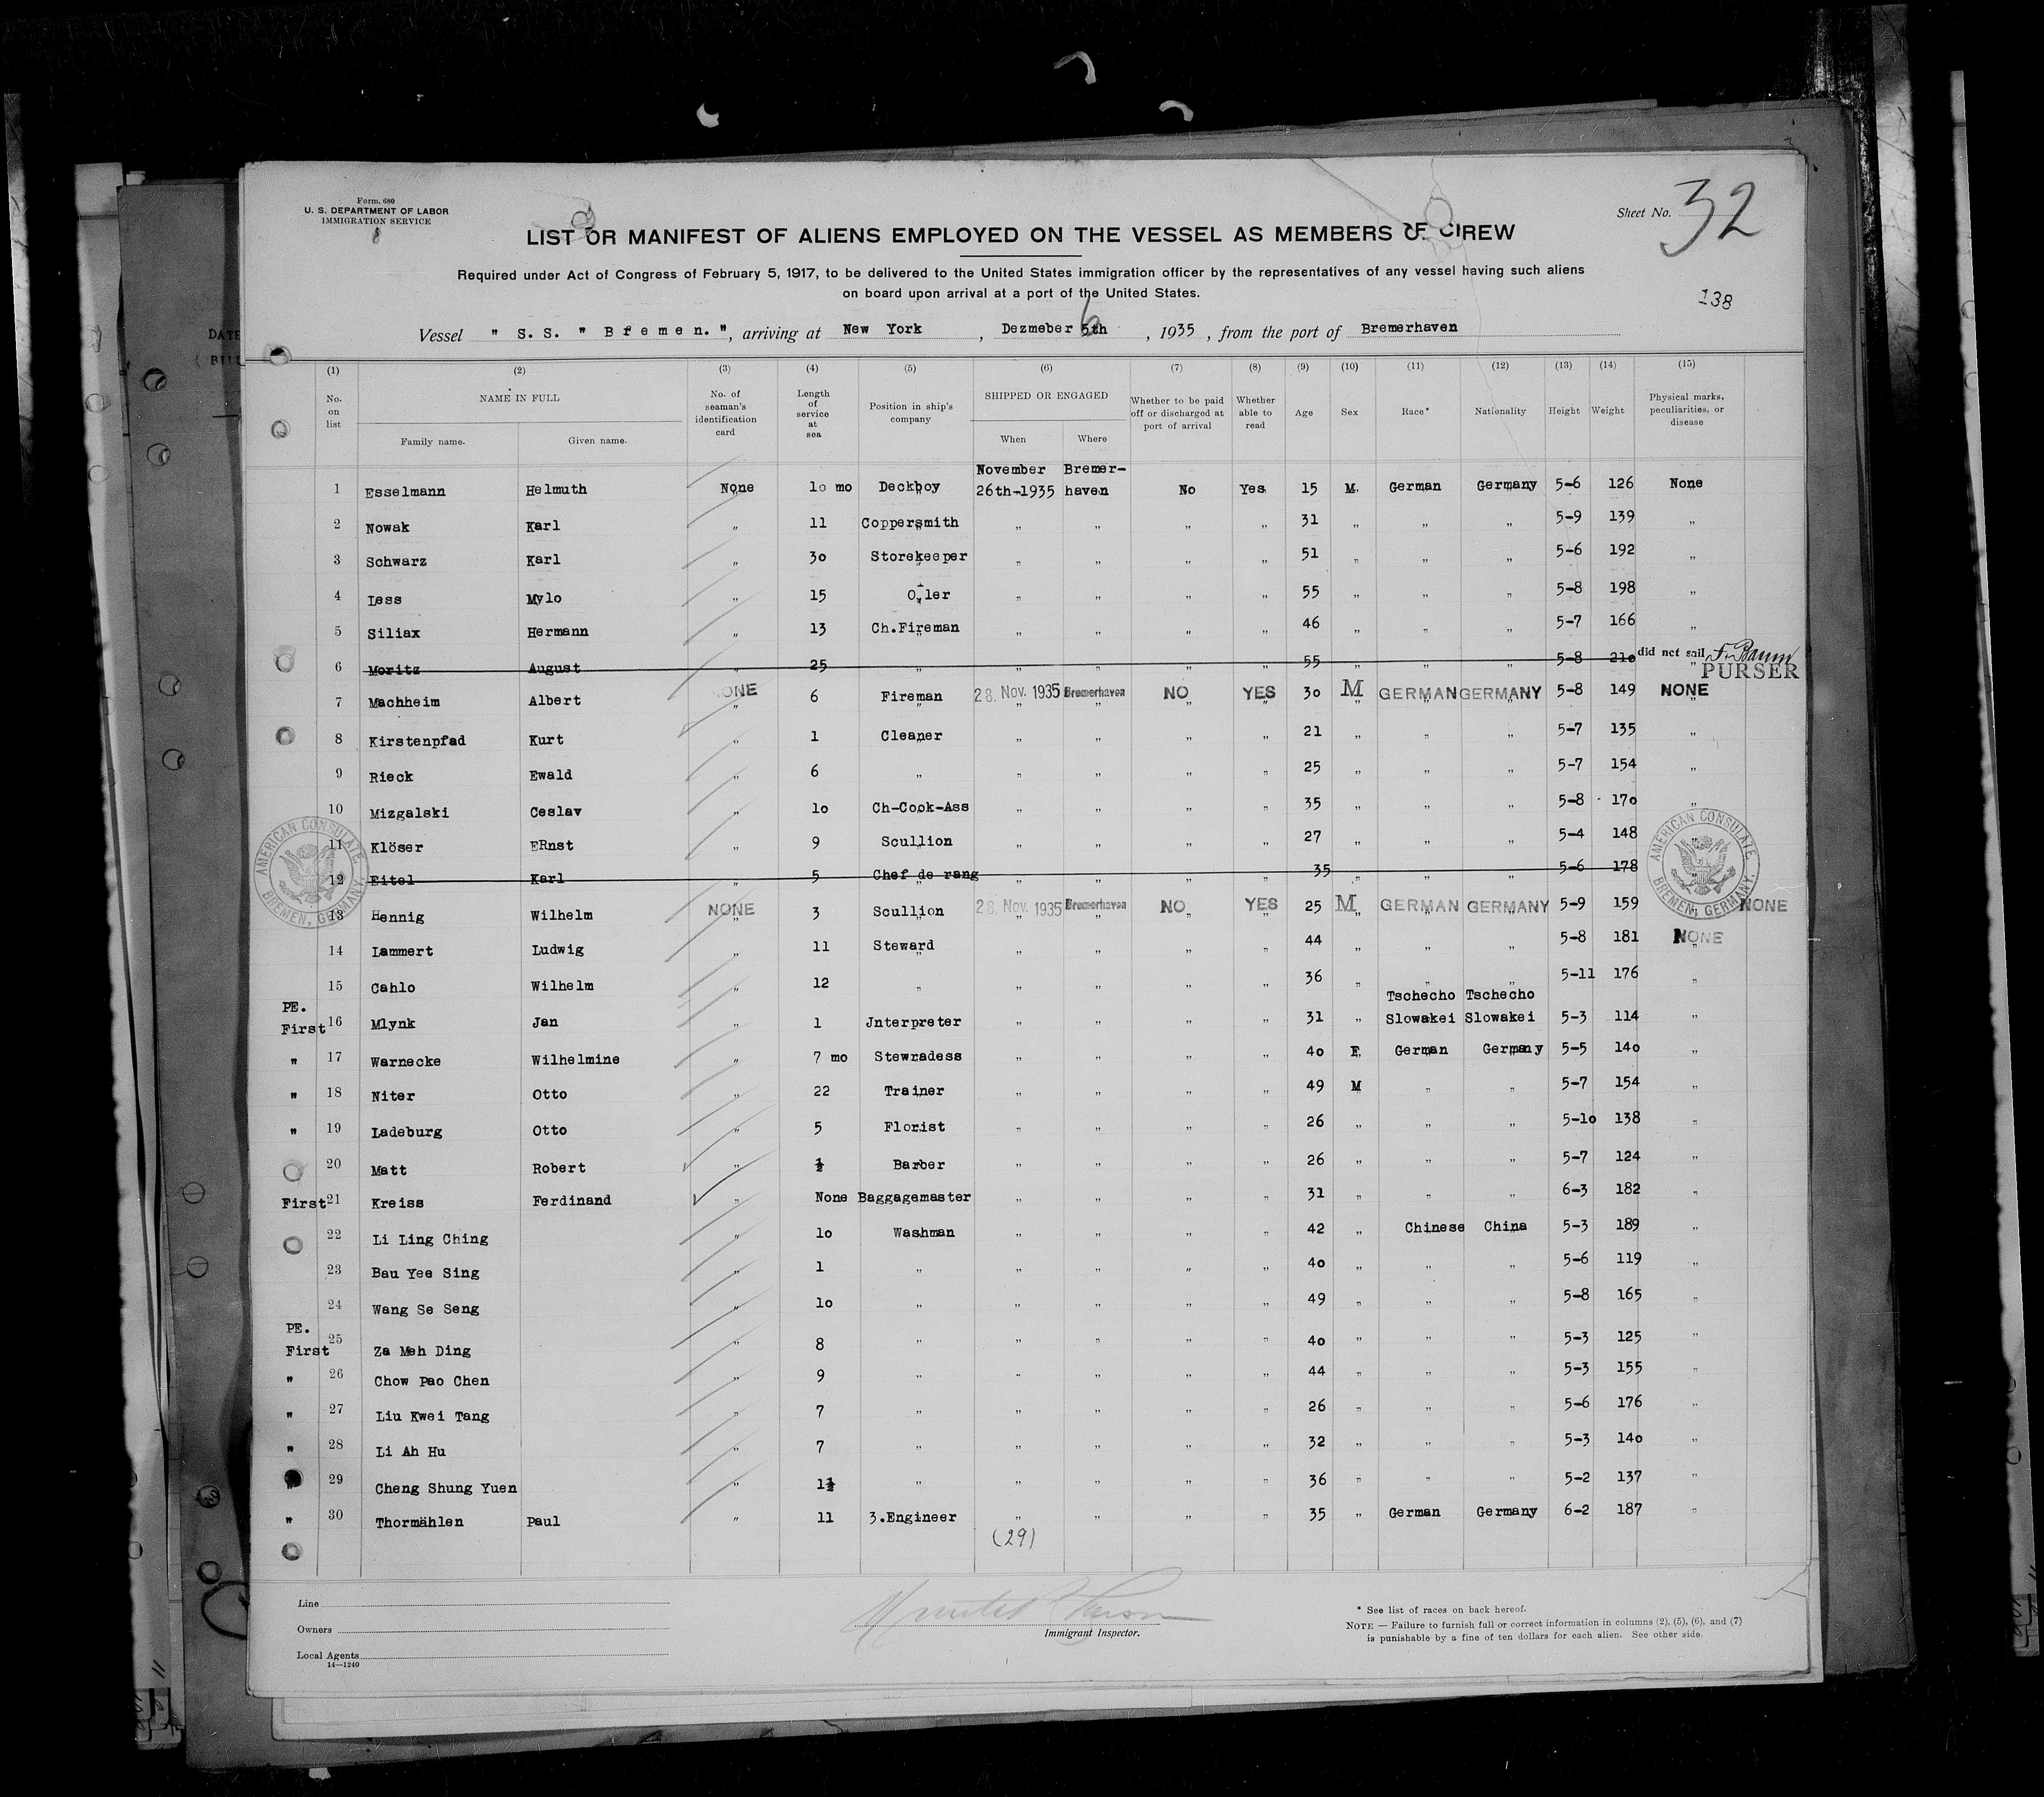 Form. 680
U. S. DEPARTMENT OF LABOR
IMMIGRATION SERVICE
8
Sheet No. 32
LIST OR MANIFEST OF ALIENS EMPLOYED ON THE VESSEL AS MEMBERS OF CIREW
Required under Act of Congress of February 5, 1917, to be delivered to the United States immigration officer by the representatives of any vessel having such aliens
on board upon arrival at a port of the United States.
138
6
Vessel " S. S. " Bremen. ", arriving at New York , Dezmeber 5th , 1935 , from the port of Bremerhaven
DATE
( BILL
(1) (2) (3) (4) (5) (6) (7) (8) (9) (10) (11) (12) (13) (14) (15)
No. on list
NAME IN FULL
Family name. Given name.
No. of seaman's identification card
Length of service at sea
Position in ship's company
SHIPPED OR ENGAGED
When Where
Whether to be paid off or discharged at port of arrival
Whether able to read
Age
Sex
Race*
Nationality
Height
Weight
Physical marks, peculiarities, or disease
November Bremer-
1 Esselmann Helmuth None 10 mo Deckboy 26th-1935 haven No Yes 15 M German Germany 5-6 126 None
2 Nowak Karl " 11 Coppersmith " " " " 31 " " " 5-9 139 "
3 Schwarz Karl " 30 Storekeeper " " " " 51 " " " 5-6 192 "
4 Less Mylo " 15 Oiler " " " " 55 " " " 5-8 198 "
5 Siliax Hermann " 13 Ch.Fireman " " " " 46 " " " 5-7 166 "
6 Moritz August " 25 " " " " " 55 " " " 5-8 210 did not sail F. Baum
PURSER
7 Machheim Albert NONE 6 Fireman 28. Nov. 1935 Bremerhaven NO YES 30 M GERMAN GERMANY 5-8 149 NONE
8 Kirstenpfad Kurt " 1 Cleaner " " " " 21 " " " 5-7 135 "
9 Rieck Ewald " 6 " " " " " 25 " " " 5-7 154 "
10 Mizgalski Ceslav " 10 Ch-Cook-Ass " " " " 35 " " " 5-8 170 "
11 Klöser ERnst " 9 Scullion " " " " 27 " " " 5-4 148
12 Eitel Karl " 5 Chef de rang " " " " 35 " " " 5-6 178 "
AMERICAN CONSULATE, BREMEN, GERMANY.
AMERICAN CONSULATE, BREMEN, GERMANY.
13 Hennig Wilhelm NONE 3 Scullion 28. Nov. 1935 Bremerhaven NO YES 25 M GERMAN GERMANY 5-9 159 NONE
14 Lammert Ludwig " 11 Steward " " " " 44 " " " 5-8 181 NONE
15 Cahlo Wilhelm " 12 " " " " " 36 " " " 5-11 176 "
PE. Tschecho Tschecho
First 16 Mlynk Jan " 1 Jnterpreter " " " " 31 " Slowakei Slowakei 5-3 114 "
" 17 Warnecke Wilhelmine " 7 mo Stewradess " " " " 40 F German Germany 5-5 140 "
" 18 Niter Otto " 22 Trainer " " " " 49 M " " 5-7 154 "
" 19 Ladeburg Otto " 5 Florist " " " " 26 " " " 5-10 138 "
20 Matt Robert " ½ Barber " " " " 26 " " " 5-7 124 "
First 21 Kreiss Ferdinand " None Baggagemaster " " " " 31 " " " 6-3 182 "
22 Li Ling Ching " 10 Washman " " " " 42 " Chinese China 5-3 189 "
23 Bau Yee Sing " 1 " " " " " 40 " " " 5-6 119 "
24 Wang Se Seng " 10 " " " " " 49 " " " 5-8 165 "
PE.
First 25 Za Meh Ding " 8 " " " " " 40 " " " 5-3 125 "
" 26 Chow Pao Chen " 9 " " " " " 44 " " " 5-3 155 "
" 27 Liu Kwei Tang " 7 " " " " " 26 " " " 5-6 176 "
" 28 Li Ah Hu " 7 " " " " " 32 " " " 5-3 140 "
" 29 Cheng Shung Yuen " 1½ " " " " " 36 " " " 5-2 137 "
" 30 Thormählen Paul " 11 3.Engineer " " " " 35 " German Germany 6-2 187 "
(29)
Line
Owners
Local Agents
14—1240
Immigrant Inspector.
* See list of races on back hereof.
NOTE — Failure to furnish full or correct information in columns (2), (5), (6), and (7)
is punishable by a fine of ten dollars for each alien. See other side.